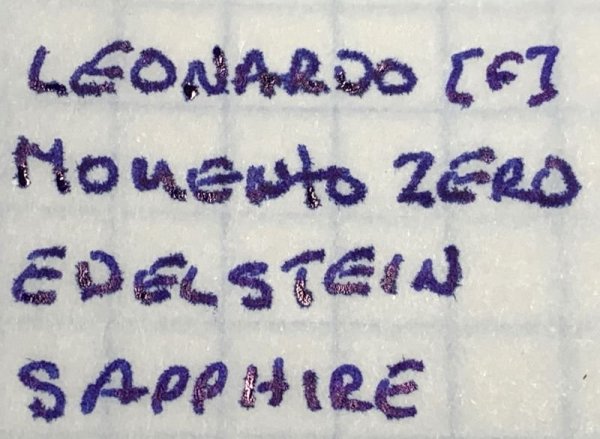 LEONARDO [F]
MOMENTO ZERO
EDELSTEIN
SAPPHIRE